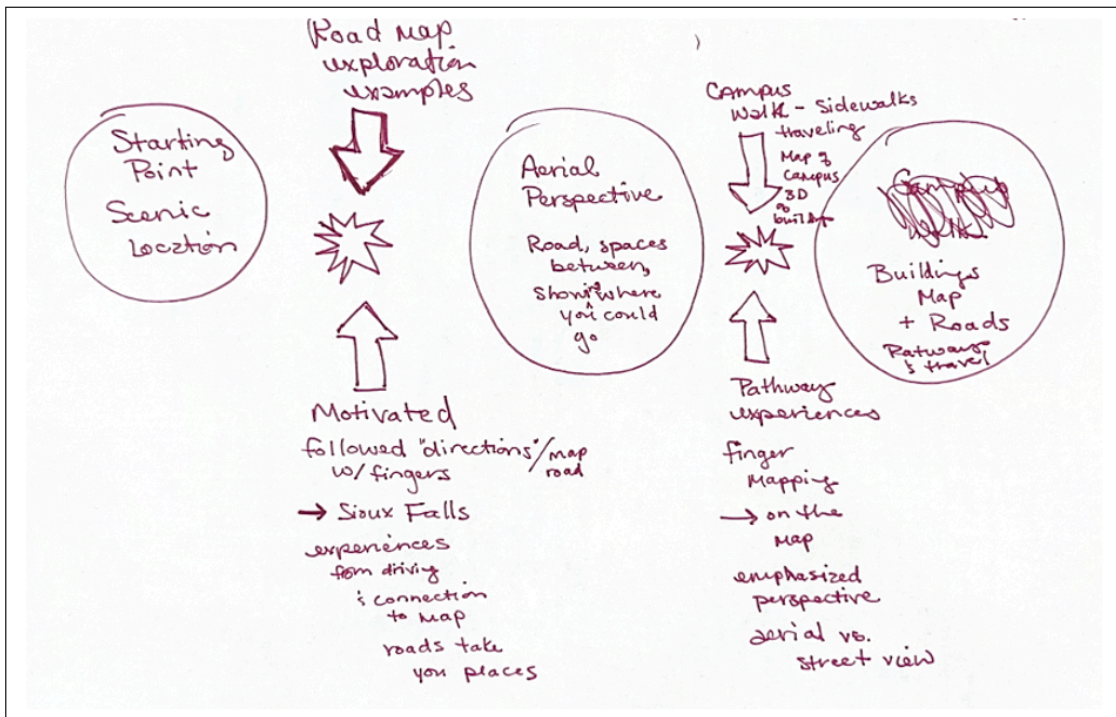 Starting
Point
Scenic
Location
Road map
exploration
examples
Motivated
followed "directions"/map
road
w/fingers
→ Sioux Falls
experiences
from driving
& connection
to map
roads take
you places
Aerial
Perspective
Road, spaces
between,
showing where
you could
go
Campus
Walk - Sidewalks
traveling
Map of
Campus
3D
buildings
Pathway
experiences
finger
Mapping
→ on the
map
emphasized
perspective
aerial vs.
street view
Buildings
Map
+ Roads
Patways
& travel